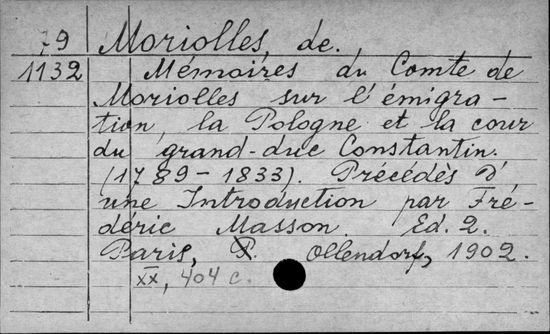 79 Moriolles, de.
1132 Mémoires du Comte de
Moriolles sur l'émigra-
tion, la Pologne et la cour
du grand-duc Constantin.
(1789-1833). Précédès d'
une Introduction par Fré-
déric Masson. Ed. 2.
Paris, P. Ollendorf, 1902.
XX, 404 c.